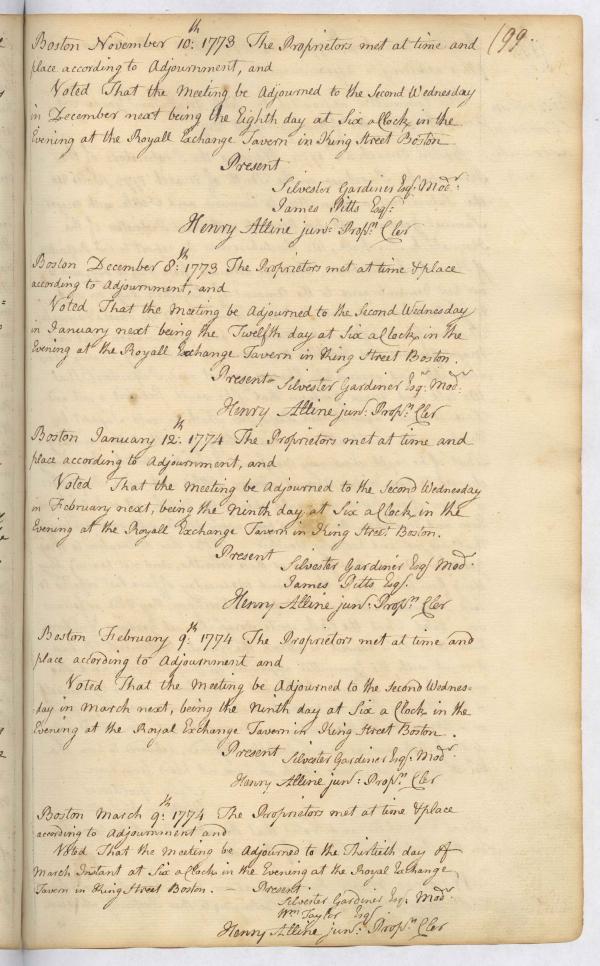 199.
Boston November 10:th 1773 The Proprietors met at time and
place according to Adjournment, and
Voted That the Meeting be Adjourned to the Second Wednesday
in December next being the Eighth day at Six a Clock in the
Evening at the Royall Exchange Tavern in King Street Boston
Present
Silvester Gardiner Esqr. Modr.
James Pitts Esqr.
Henry Alline junr. Propn. Cler
Boston December 8:th 1773 The Proprietors met at time & place
according to Adjournment, and
Voted That the Meeting be Adjourned to the Second Wednesday
in January next being the Twelfth day at Six a Clock in the
Evening at the Royall Exchange Tavern in King Street Boston.
Present Silvester Gardiner Esqr. Modr.
Henry Alline junr. Propn. Cler
Boston January 12:th 1774 The Proprietors met at time and
place according to Adjournment, and
Voted That the Meeting be Adjourned to the Second Wednesday
in February next, being the Ninth day at Six a Clock in the
Evening at the Royall Exchange Tavern in King Street Boston.
Present
Silvester Gardiner Esqr Modr.
James Pitts Esqr.
Henry Alline junr. Propn. Cler
Boston February 9:th 1774 The Proprietors met at time and
place according to Adjournment and
Voted That the Meeting be Adjourned to the Second Wednes-
day in March next, being the Ninth day at Six a Clock in the
Evening at the Royal Exchange Tavern in King Street Boston.
Present Silvester Gardiner Esqr. Modr.
Henry Alline junr. Propn. Cler
Boston March 9:th 1774 The Proprietors met at time & place
according to Adjournment and
Voted That the Meeting be Adjourned to the Thirtieth day of
March Instant at Six a Clock in the Evening at the Royal Exchange
Tavern in King Street Boston. — Present
Silvester Gardiner Esqr. Modr.
Wm Taylor Esqr
Henry Alline junr. Propn. Cler